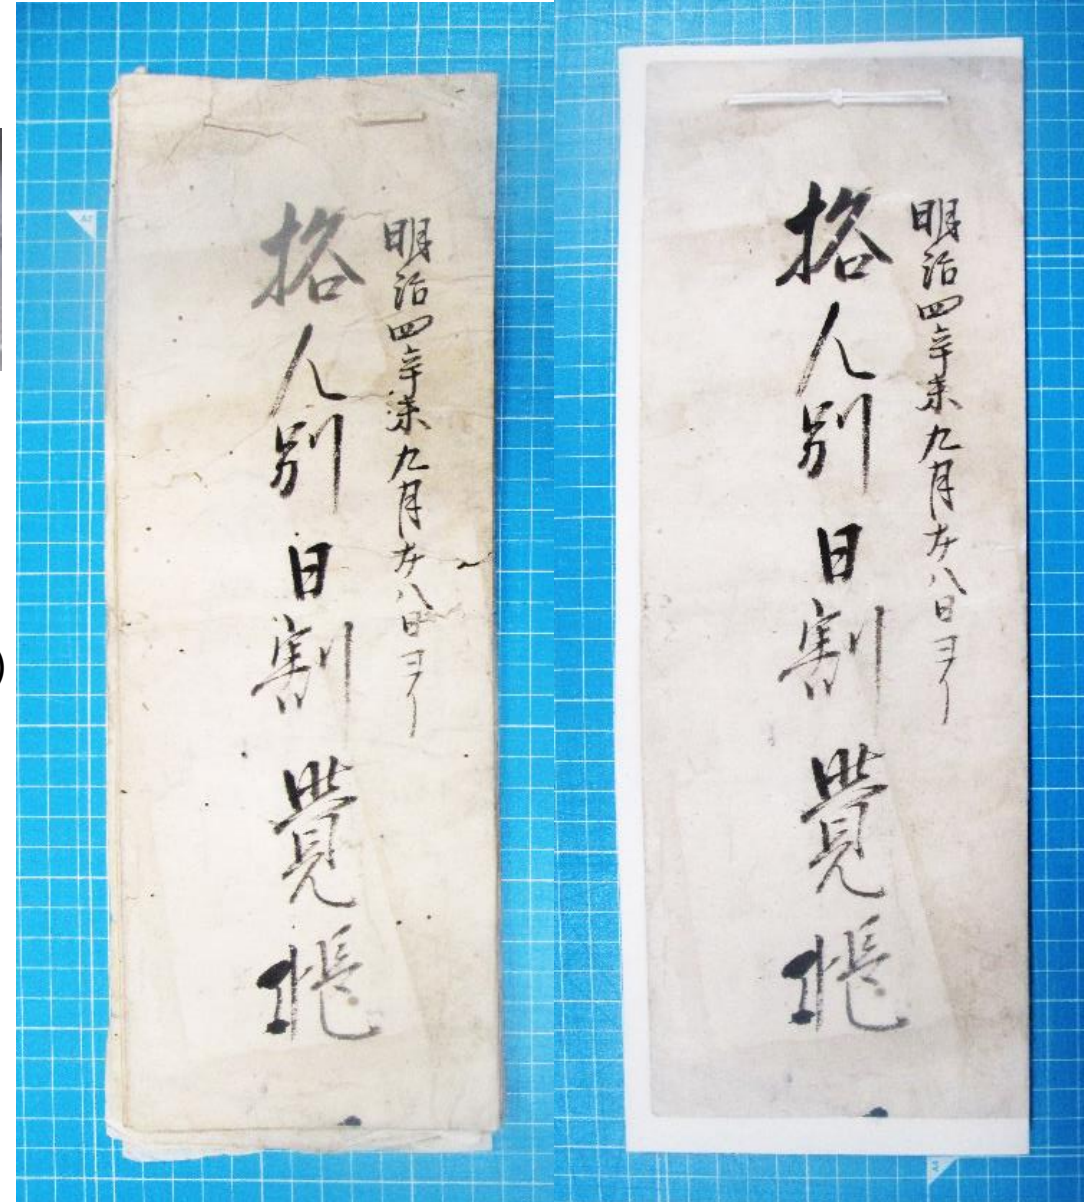 明治四辛未九月廿八日ヨリ
挌人別日割覺帳
明治四辛未九月廿八日ヨリ
挌人別日割覺帳